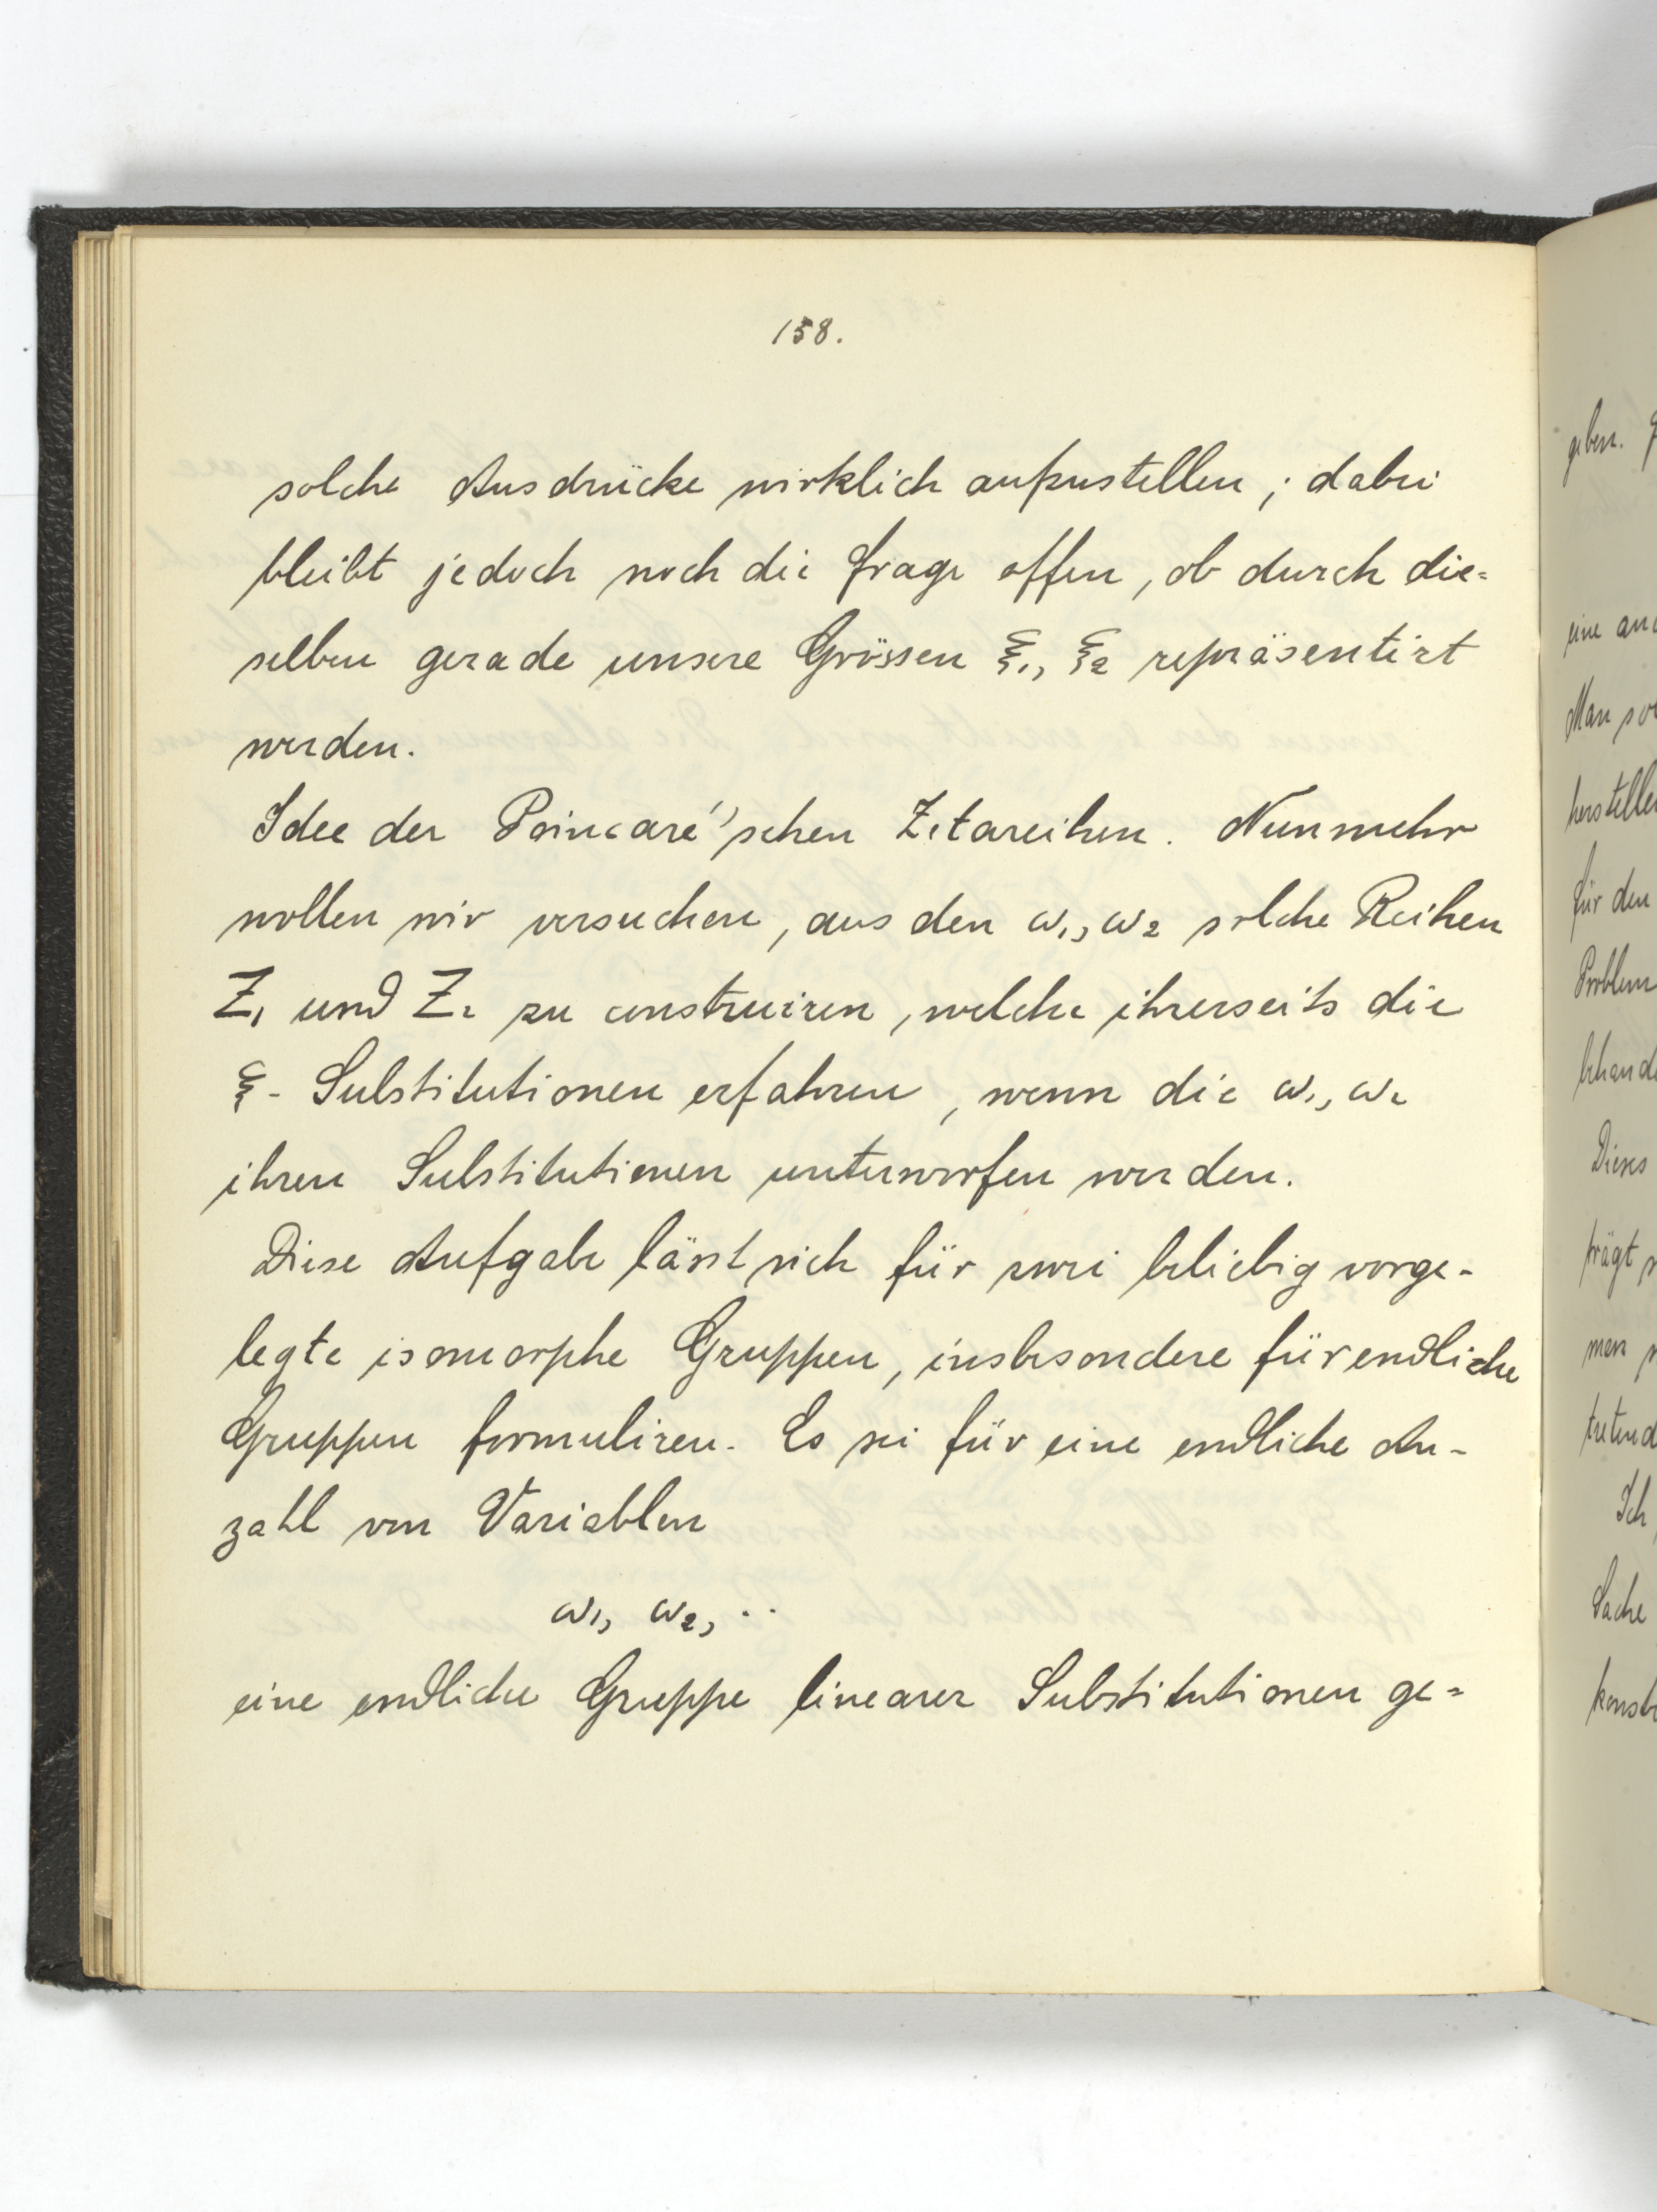 158.
solche Ausdrücke wirklich aufzustellen; dabei
bleibt jedoch noch die Frage offen, ob durch die=
selben gerade unsere Grössen ξ1, ξ2 repräsentirt
werden.
Idee der Poincaré'schen Zetareihen. Nunmehr
wollen wir versuchen, aus den ω1, ω2 solche Reihen
Z1 und Z2 zu construiren, welche ihrerseits die
ξ- Substitutionen erfahren, wenn die ω1, ω2
ihren Substitutionen unterworfen werden.
Diese Aufgabe lässt sich für zwei beliebig vorge-
legte isomorphe Gruppen, insbesondere für endliche
Gruppen formuliren. Es sei für eine endliche An-
zahl von Variablen
ω1, ω2, ..
eine endliche Gruppe linearer Substitutionen ge=
geben.
eine
Man
herstellen
für den
Problem
Dieses
prägt
men
Ich
Sache